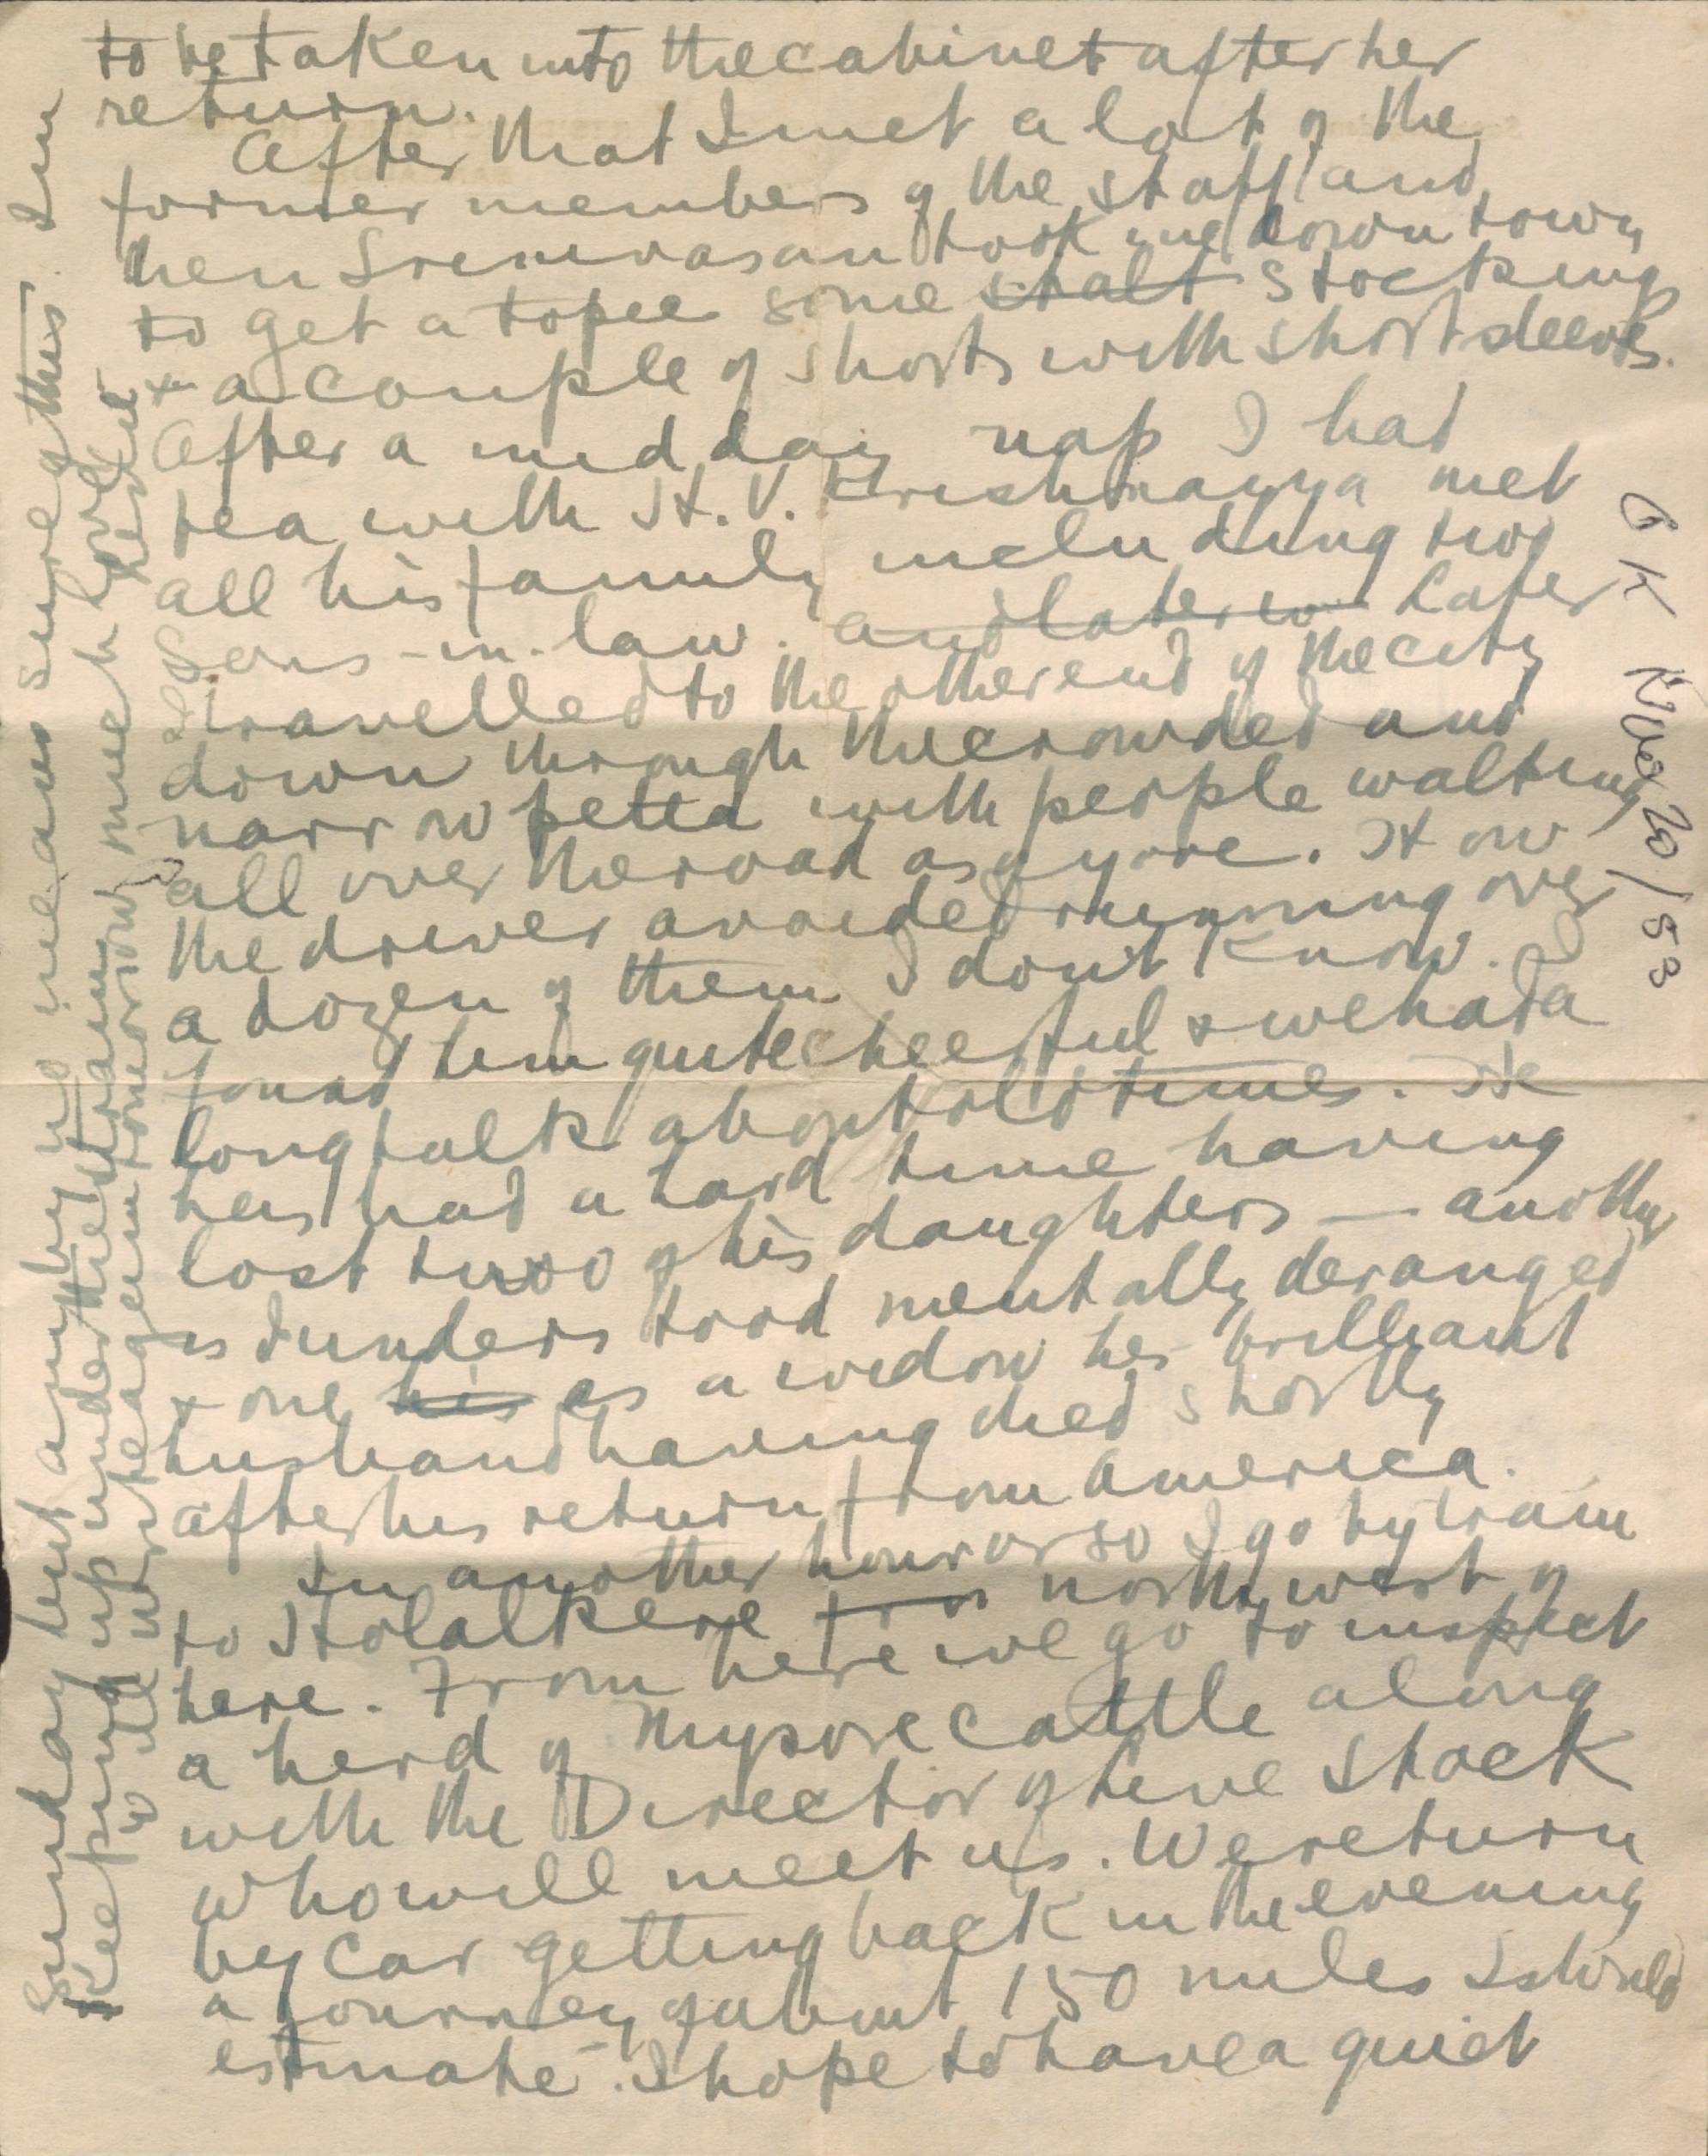 to be taken into the cabinet after her
return.
After that I met a lot of the
former members of the staff and
then Srinivasan took me down town
to get a topee some stalt stockings
+ a couple of shorts with short sleeves.
After a mid day nap I had
tea with H.V. Krishnayya met
all his family including two
sons-in-law. and later w Later
I travelled to the other end of the city
down through the crowded and
narrow petta with people walking
all over the road as of yore. How
the driver avoided running over
a dozen of them I don't know. I
found him quite cheerful & we had a
long talk about old times. He
has had a hard time having
lost two of his daughters — another
is I understood mentally deranged
+ one his is a widow her brilliant
husband having died shortly
after his return from America.
In another hour or so I go by train
to Holalkere north west of
here. From here we go to inspect
a herd of Mysore cattle along
with the Director of Live Stock
who will meet us. We return
by car getting back in the evening
a journey of about 150 miles I should
estimate. I hope to have a quiet
Sunday but am by no means sure of this. I'm
Keeping up under the strain
will write again tomorrow much love
20/53